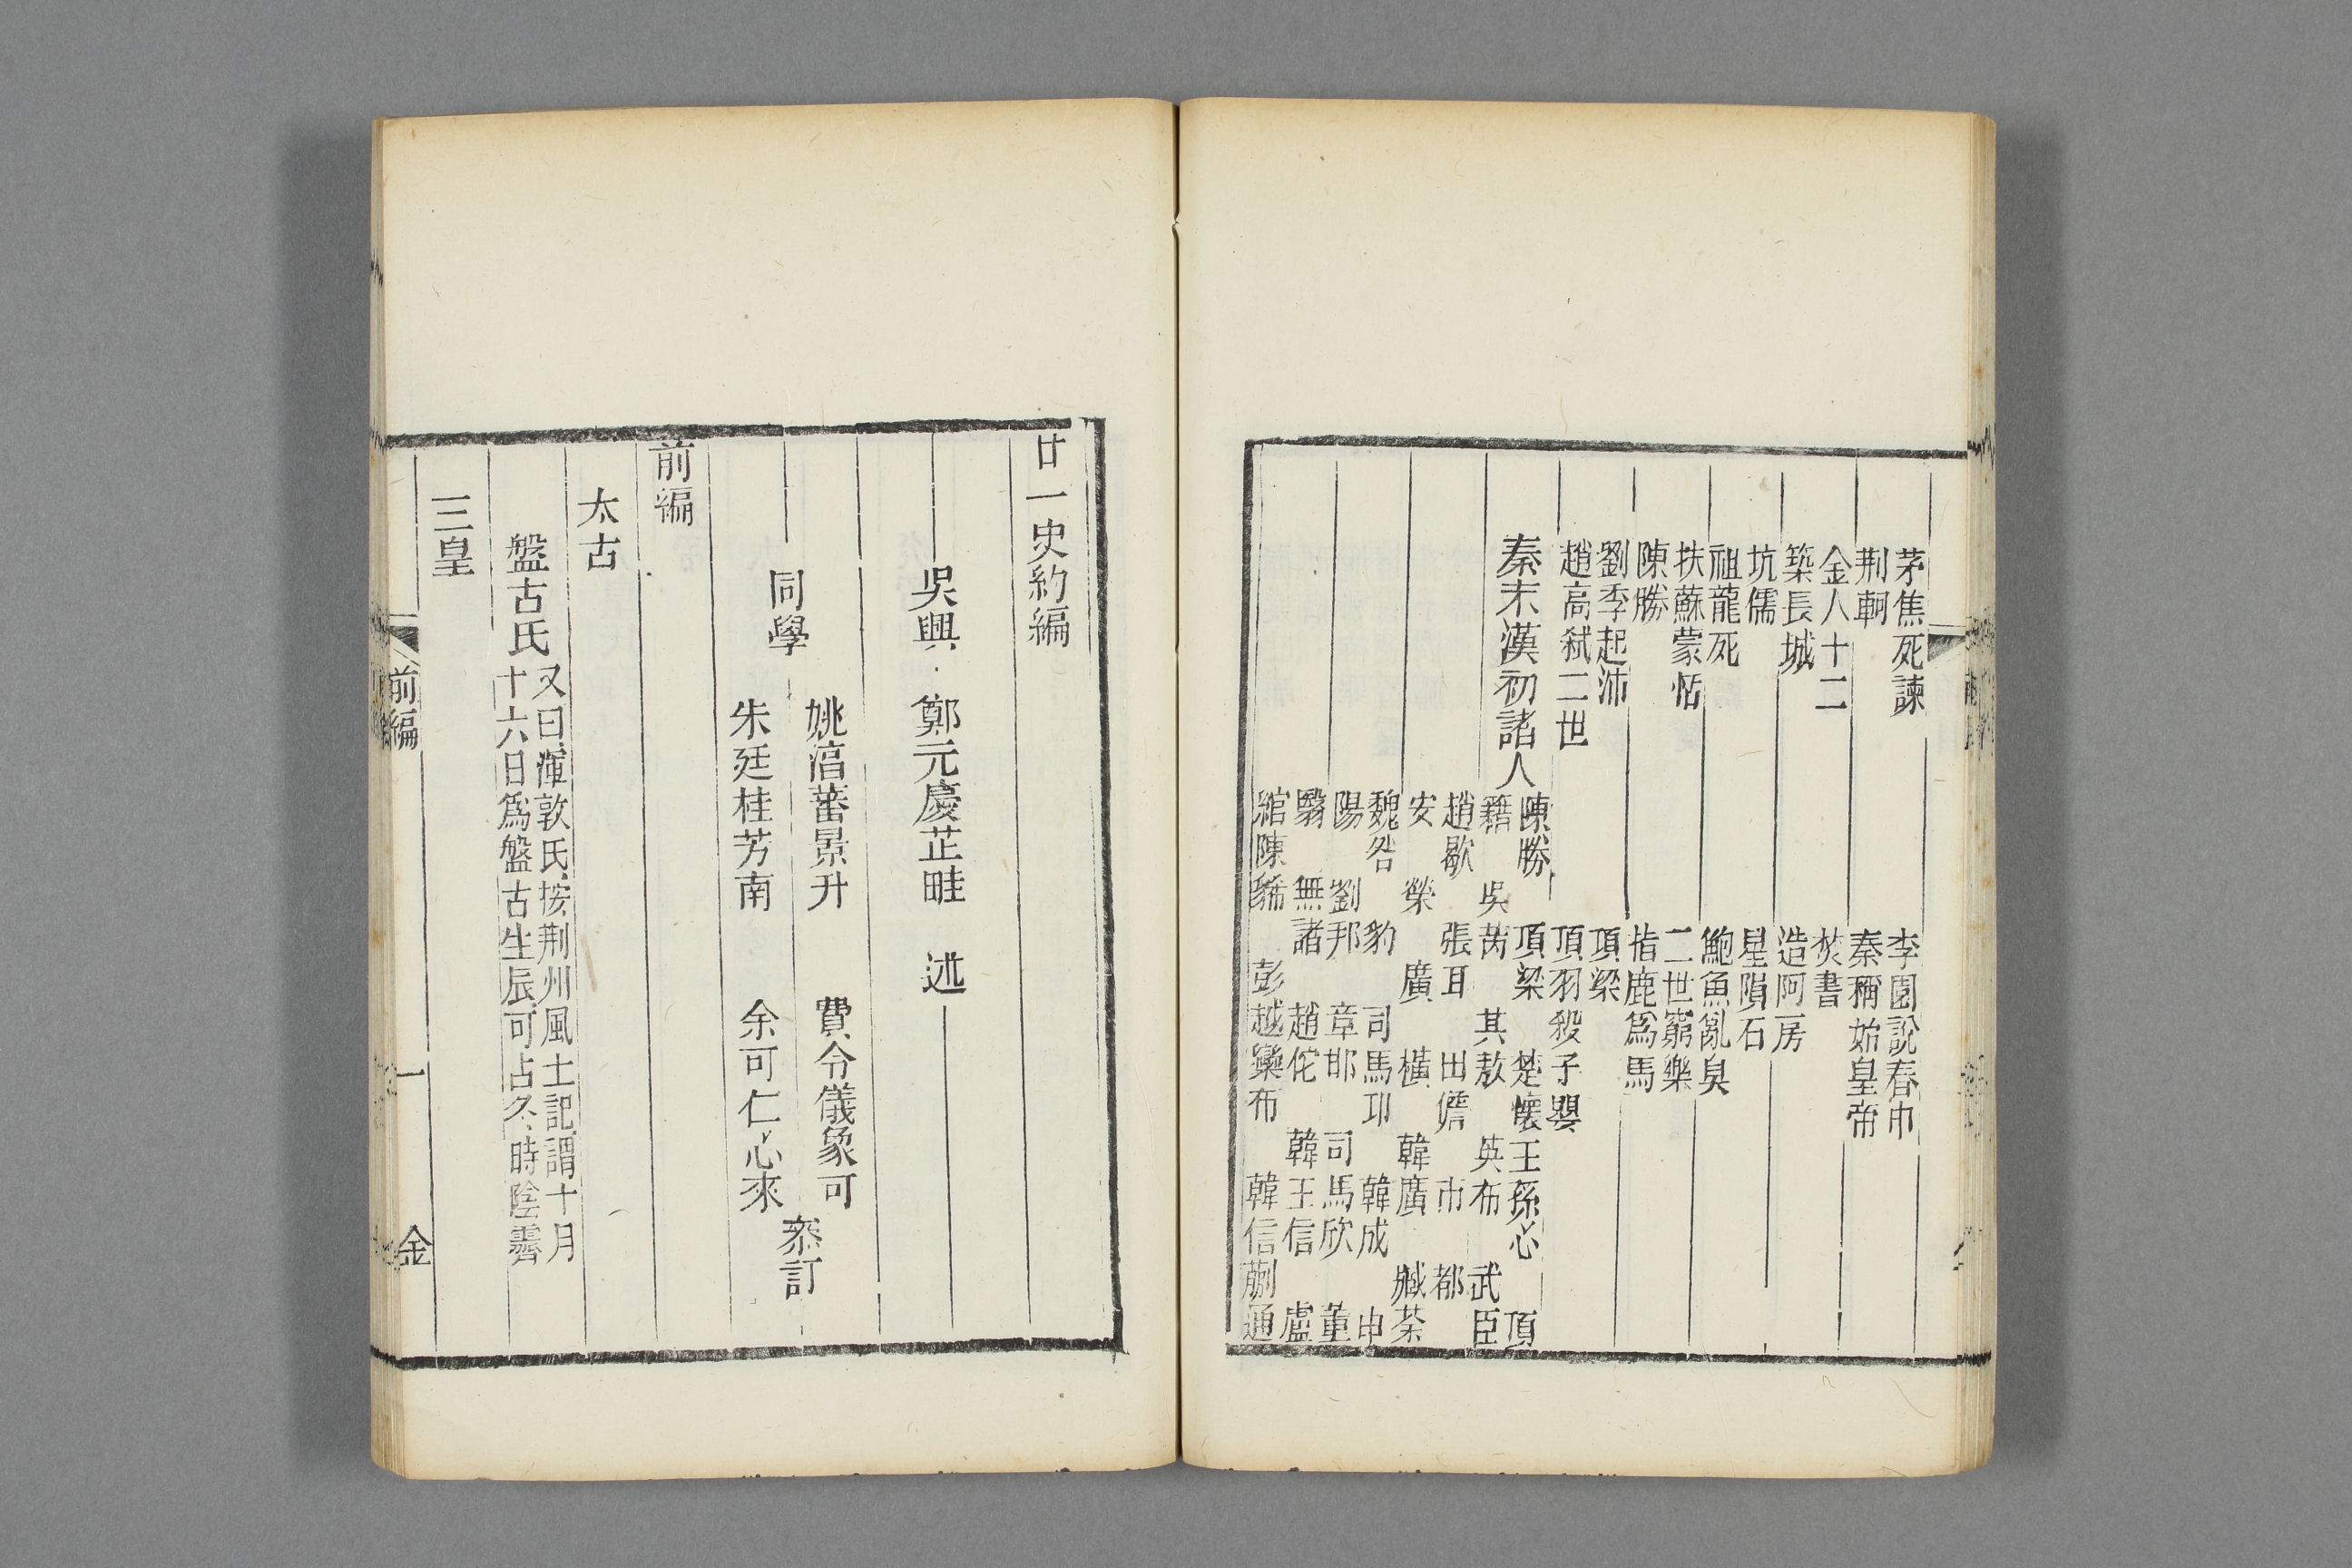 茅焦死諫　李園說春巾
荆軻　秦稱始皇帝
金人十二　焚書
築長城　造阿房
坑儒　星隕石
祖龍死　鮑魚亂臭
扶蘇蒙恬　二世窮樂
陳勝　指鹿爲馬
劉季起沛　項梁
趙高弑二世　項羽殺子嬰
秦末漢初諸人
陳勝　項梁　楚懷王孫心　項
籍　吳芮　其敖　英布　武臣
趙歇　張耳　田儋　市　都
安　榮　廣　橫　韓廣　臧荼
魏咎　豹　司馬卭　韓成　申
陽　劉邦　章邯　司馬欣　董
翳　無諸　趙佗　韓王信　盧
綰陳豨　彭越欒布　韓信蒯通
廿一史約編
吳興　鄭元慶芷畦　述
姚淐蕃景升　費令儀象可
同學　叅訂
朱廷桂芳南　余可仁心來
前編
太古
盤古氏
又曰渾敦氏按荆州風土記謂十月
十六日爲盤古生辰可占冬時陰霽
三皇
前編　一　金